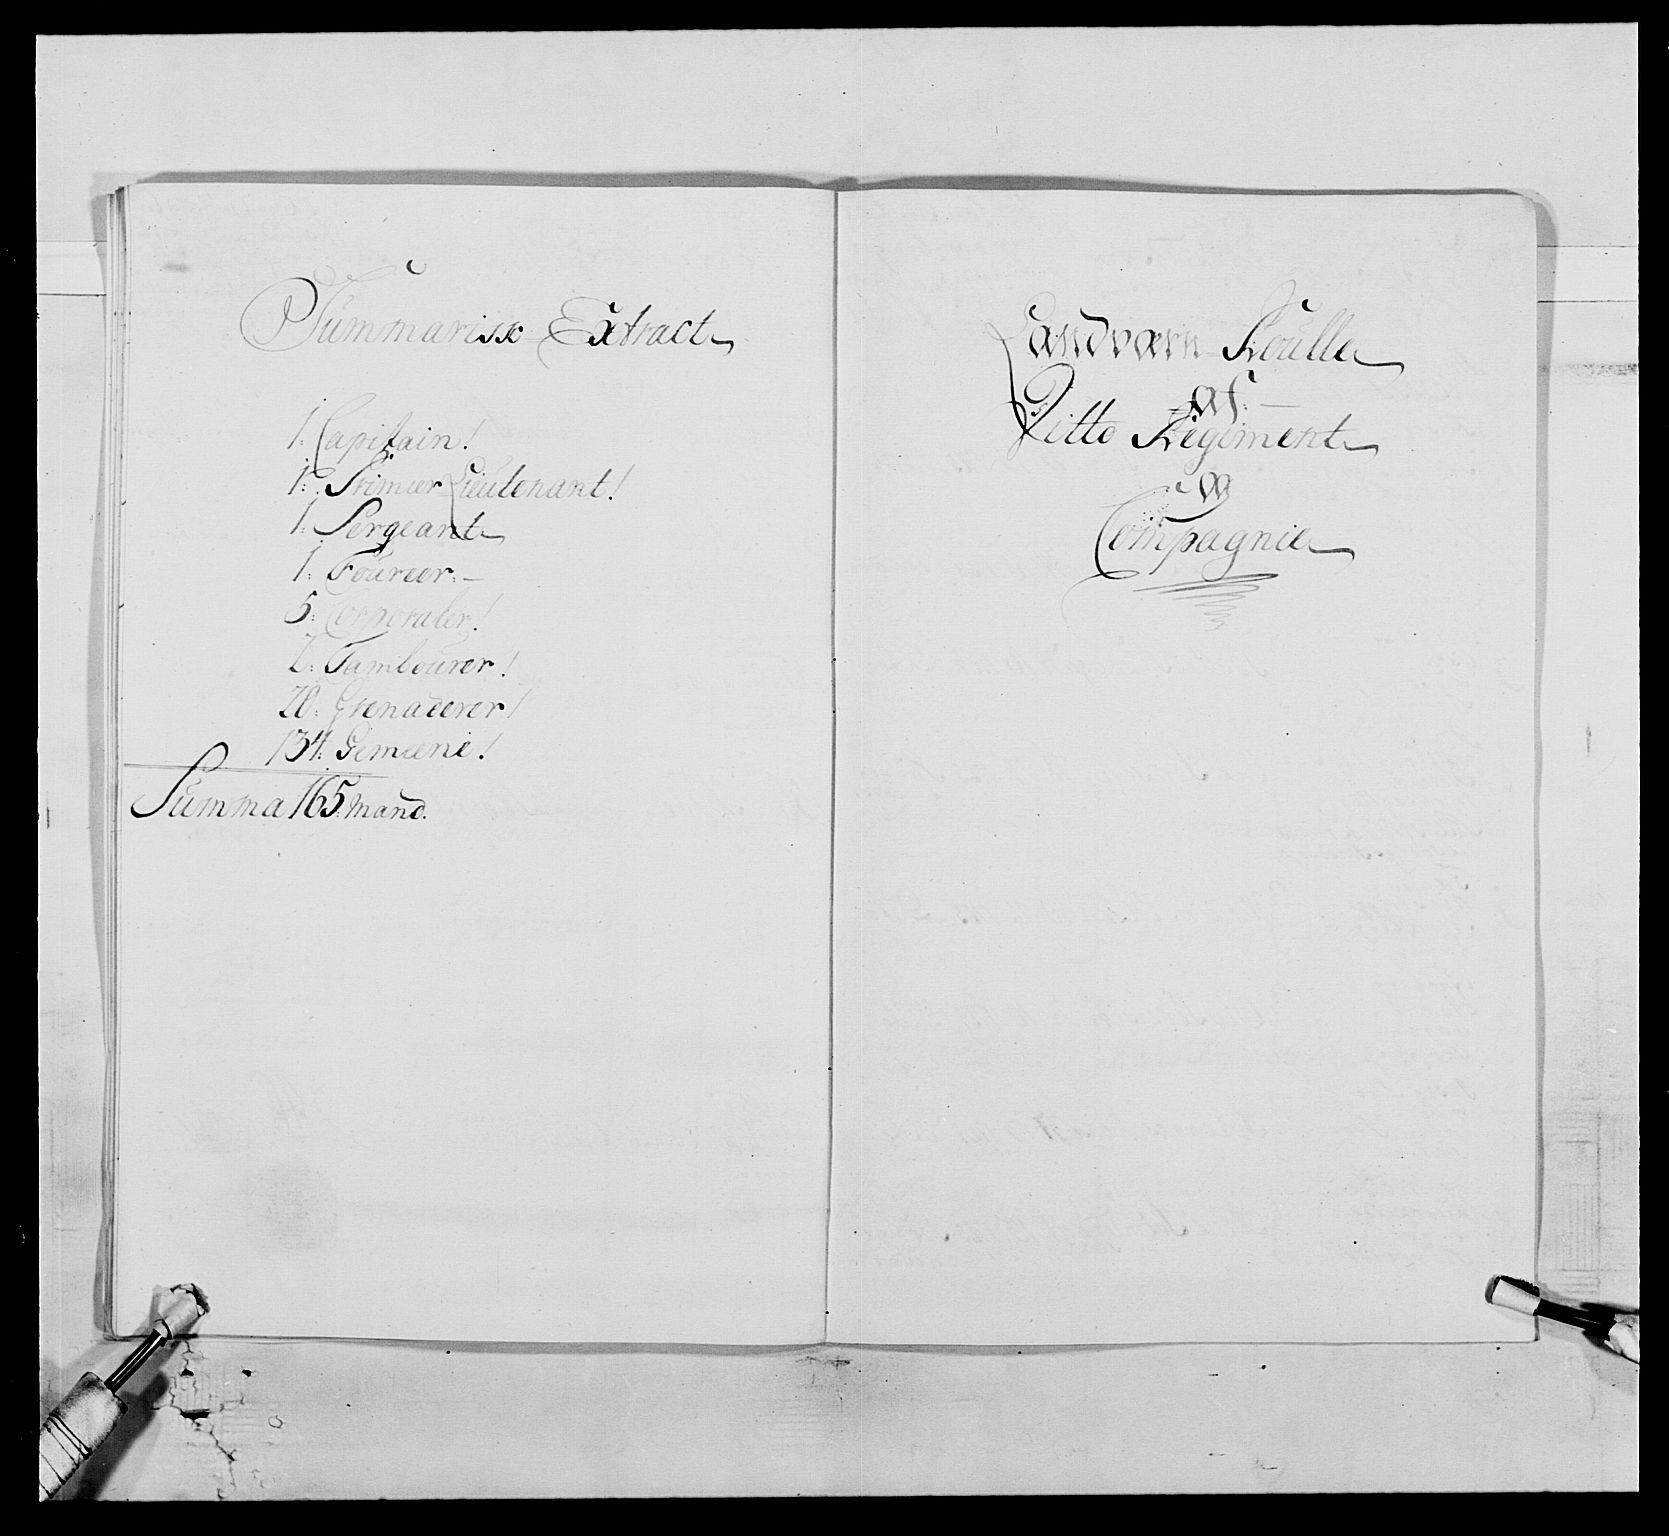 Summarisk Extract
1. Capitain!
1. Primier Lieutenant!
1. Sergeant
1. Foureer.
5. Corporaler!
2. Tambourer!
20. Grenaderer!
134. Gemeene!
Summa 165. Mand.
Landværn Roulle
af
Ditto Regiment
og
Compagnie